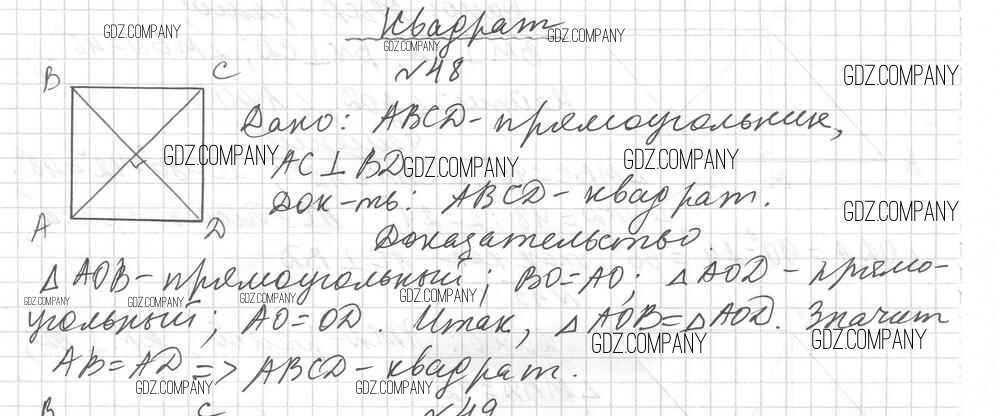 Квадрат
GDZ.COMPANY
GDZ.COMPANY
GDZ.COMPANY
№48
GDZ.COMPANY
B C
Дано: ABCD - прямоугольник,
GDZ.COMPANY
AC ⊥ BD
GDZ.COMPANY
GDZ.COMPANY
Док-ть: ABCD - квадрат.
GDZ.COMPANY
A D
Доказательство.
△AOB - прямоугольный; BO=AO; △AOD - прямо-
GDZ.COMPANY
GDZ.COMPANY
GDZ.COMPANY
GDZ.COMPANY
угольный; AO=OD. Итак, △AOB=△AOD. Значит
GDZ.COMPANY
GDZ.COMPANY
AB=AD => ABCD - квадрат.
GDZ.COMPANY
GDZ.COMPANY
B C №49